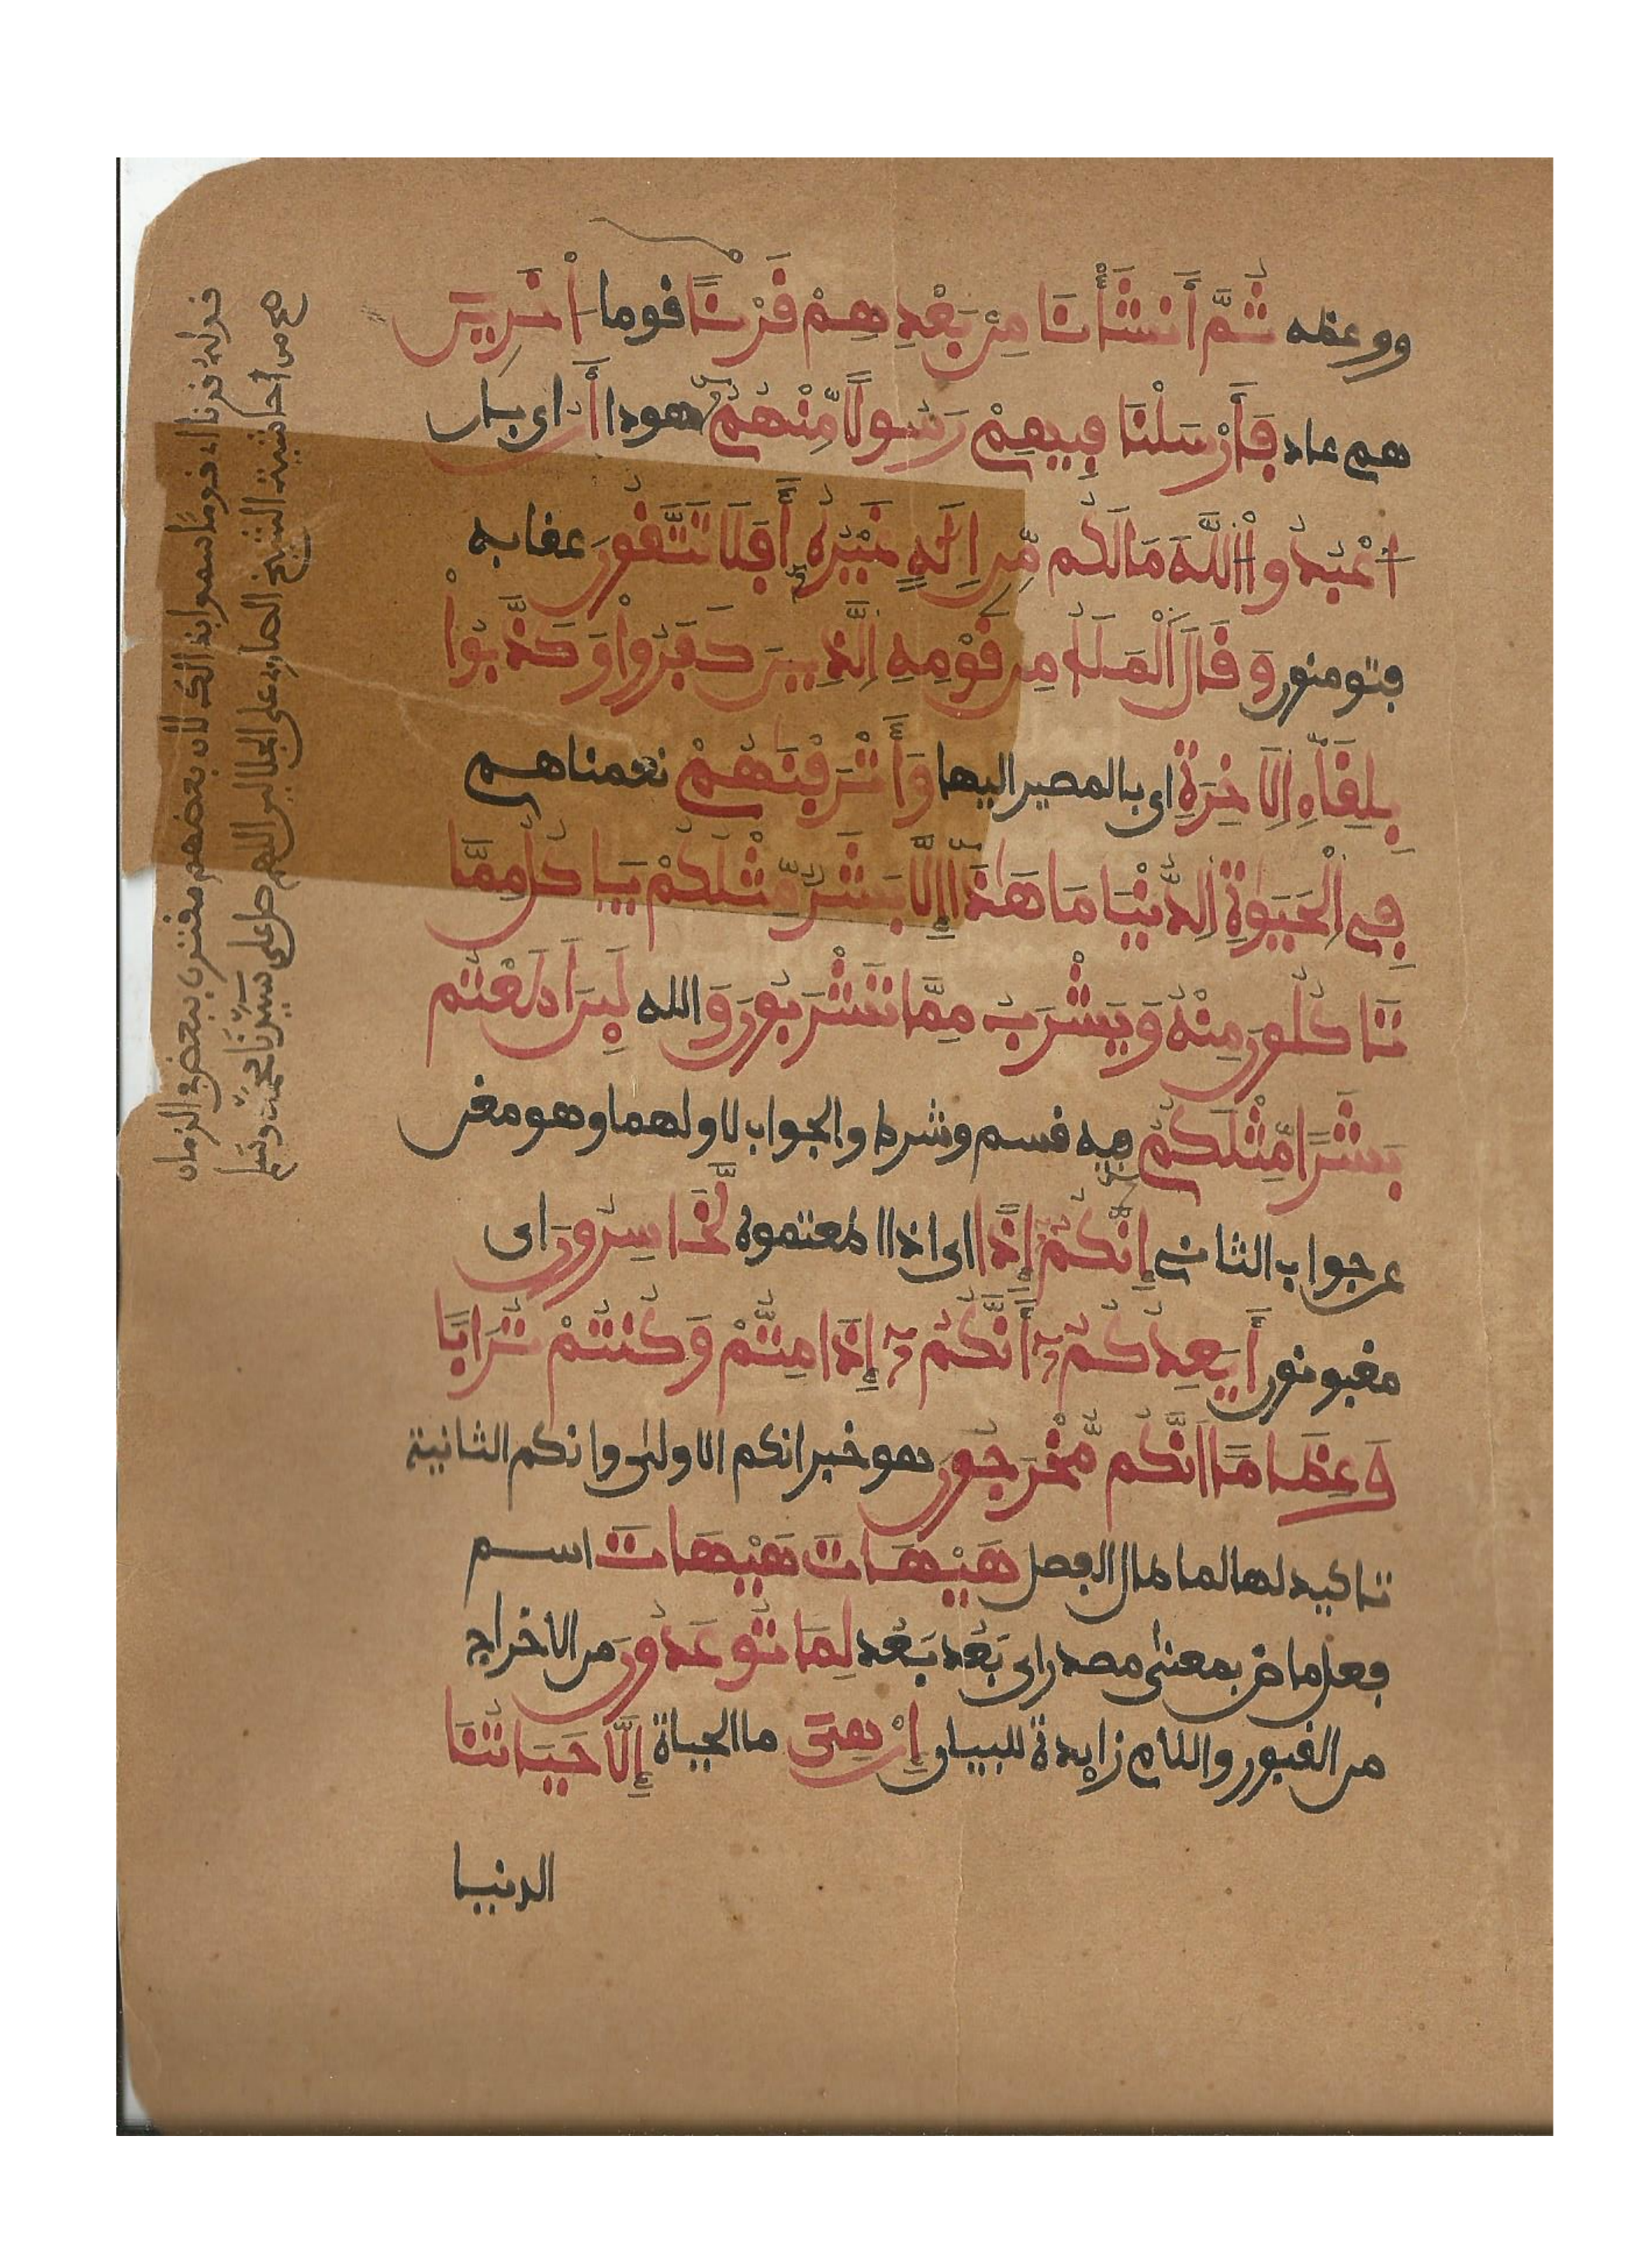 ووعظه ثُمَّ أَنشَأْنَا مِنۢ بَعْدِهِمْ قَرْنًا قوما اٰخَرِينَ
هم عاد فَأَرْسَلْنَا فِيهِمْ رَسُولًا مِّنْهُمْ هودا أَنُ اى بان
اُعْبُدُوا اللَّهَ مَا لَكُم مِّنِ اِلَٰهٍ غَيْرُهُ أَفَلَا تَتَّقُونَ عقابه
فتومنون وَقَالَ الْمَلَأُ مِن قَوْمِهِ الَّذِينَ كَفَرُواْ وَكَذَّبُواْ
بِلِقَآءِ الَاخِرَةِ اى بالمصير اليها وَأَتْرَفْنَٰهُمْ نعمناهم
فِي الْحَيَوٰةِ الدُّنْيَا مَا هَٰذَا إِلَّا بَشَرٌ مِّثْلُكُمْ يَاكُلُ مِمَّا
تَاكُلُونَ مِنْهُ وَيَشْرَبُ مِمَّا تَشْرَبُونَ وَ الله لَئِنَ اَطَعْتُم
بَشَرًا مِّثْلَكُمُ فيه قسم وشرط والجواب لاولهما وهو مغن
عن جواب الثانى إِنَّكُمُ إِذًا اى اذا اطعتموه لَّخَاسِرُونَ اى
مغبونون أَيَعِدُكُمُ أَنَّكُمُ إِذَا مِتُّمْ وَكُنتُمْ تُرَابًا
وَعِظَامًا اَنَّكُم مُّخْرَجُونَ هو خبر انكم الاولى وانكم الثانية
تاكيد لها لما طال الفصل هَيْهَاتَ هَيْهَاتَ اسم
فعل ماض بمعنى مصدر اى بَعُد بَعُد لِمَا تُوعَدُونَ من الاخراج
من القبور واللام زايدة للبيان إِنْ هِىَ ما الحياة إِلَّا حَيَاتُنَا
الدنيا
قوله قرنا اى قوما سموا بذالك لأن بعضهم مقترن ببعض فى الزمان
من حاشية الشيخ الصاوى على الجلالين اللهم صل على سيدنا محمد وسلم